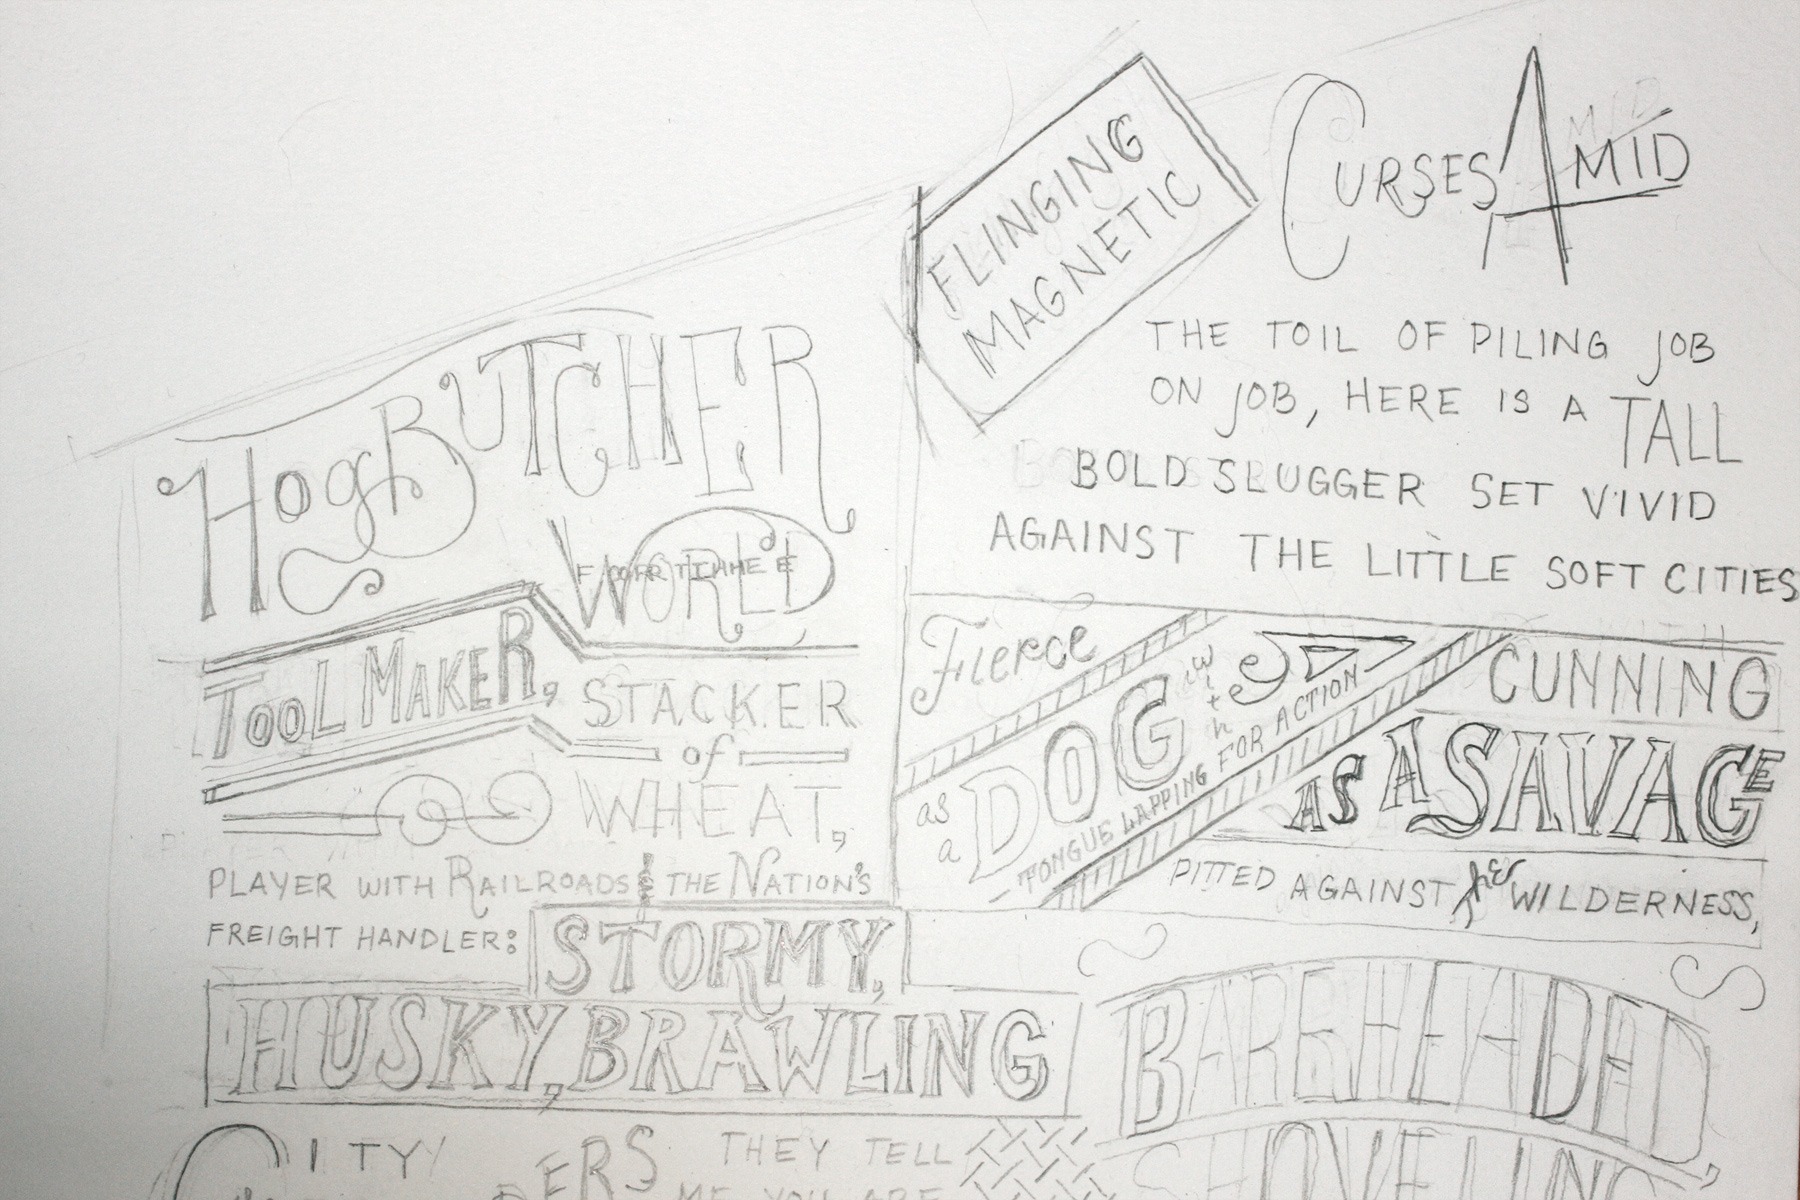 HogBUTCHER
FOR THE
WORLD
TOOL MAKER,
STACKER
of
WHEAT,
PLAYER WITH RAILROADS & THE NATION'S
FREIGHT HANDLER:
STORMY,
HUSKY, BRAWLING
CITY
DERS
THEY TELL
ME YOU ARE
FLINGING
MAGNETIC
CURSES AMID
THE TOIL OF PILING JOB
ON JOB, HERE IS A TALL
BOLD SLUGGER SET VIVID
AGAINST THE LITTLE SOFT CITIES
Fierce
as a DOG with
TONGUE LAPPING FOR ACTION
CUNNING
AS A SAVAGE
PITTED AGAINST the WILDERNESS,
BAREHEADED,
SHOVELING